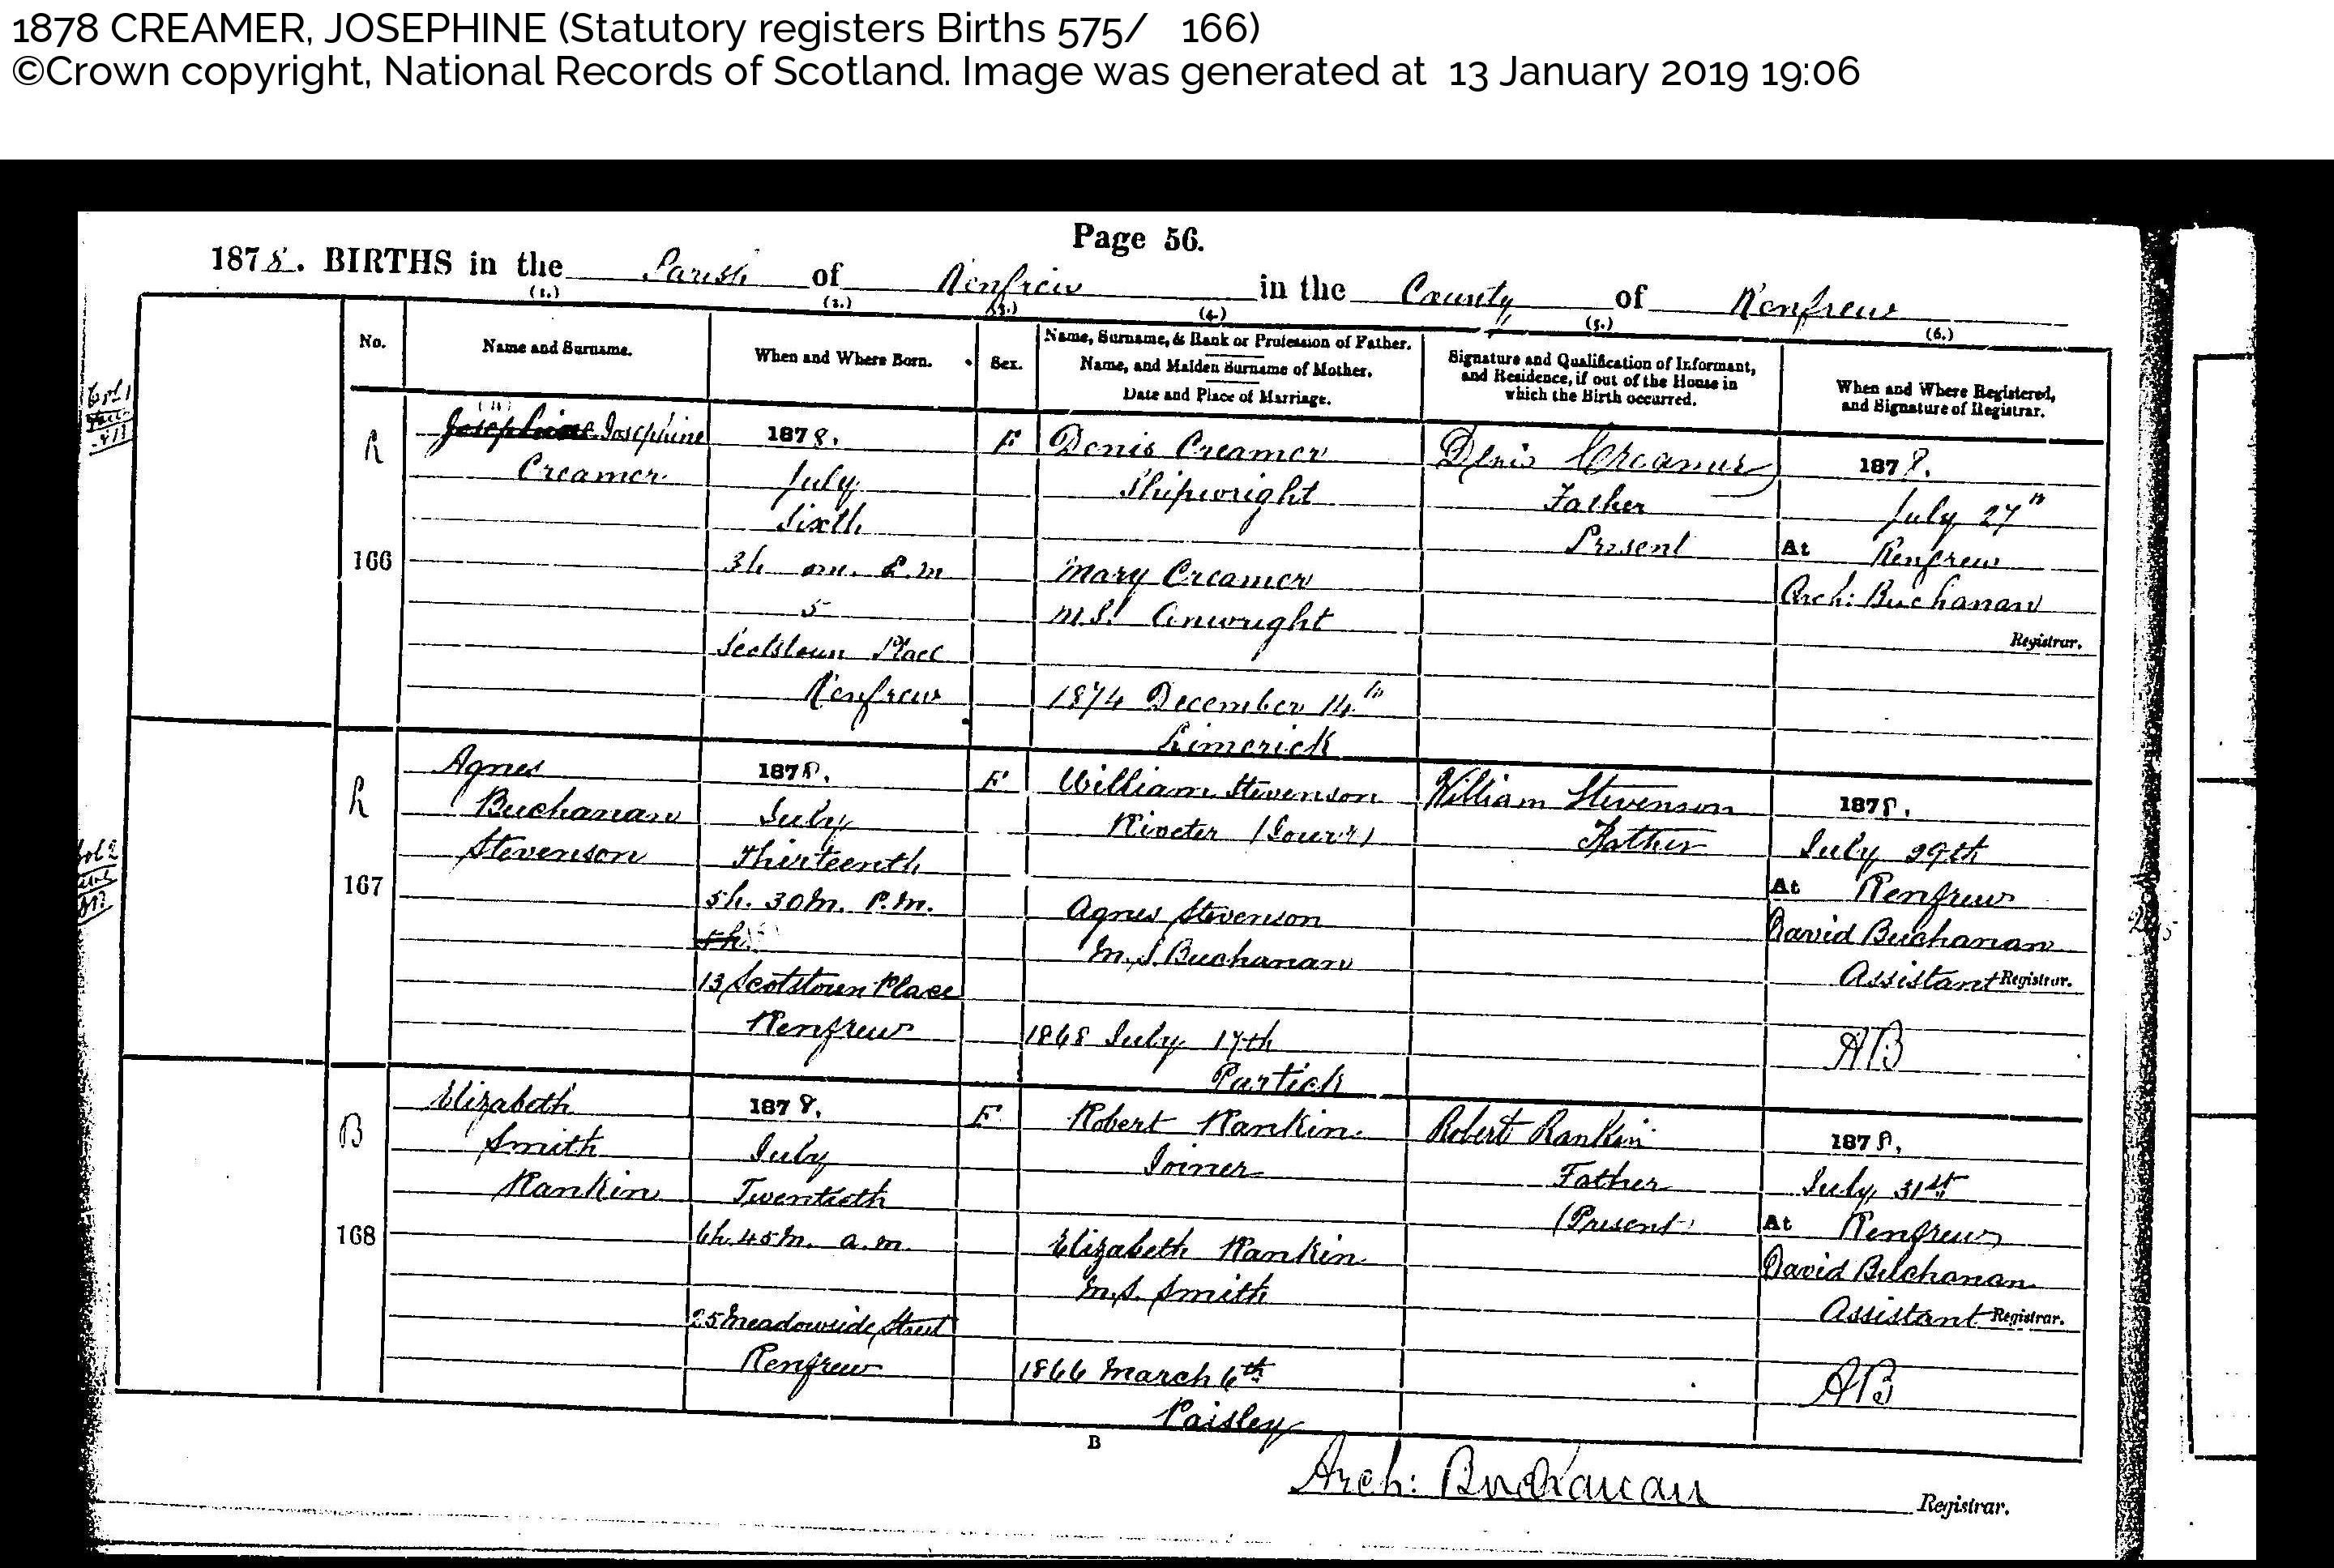 1878 CREAMER, JOSEPHINE (Statutory registers Births 575/ 166)
©Crown copyright, National Records of Scotland. Image was generated at 13 January 2019 19:06
Page 56.
1878. BIRTHS in the Parish of Renfrew in the County of Renfrew
(1.) (2.) (3.) (4.) (5.) (6.)
No.
Name and Surname.
When and Where Born.
Sex.
Name, Surname, & Rank or Profession of Father.
Name, and Maiden Surname of Mother.
Date and Place of Marriage.
Signature and Qualification of Informant,
and Residence, if out of the House in
which the Birth occurred.
When and Where Registered,
and Signature of Registrar.
166
Josephine Josephine
Creamer
1878.
July
Sixth
3h om. P.m
5
Scotstoun Place
Renfrew
F
Denis Creamer
Shipwright
Mary Creamer
M.S.
1874 December 14th
Limerick
Denis Creamer
Father
Present
1878.
July 27th
At Renfrew
Arch: Buchanan
Registrar.
167
Agnes
Buchanan
Stevenson
1878.
July
Thirteenth
5h. 30m. P.m.
5h
13 Scotstoun Place
Renfrew
F
William Stevenson
Riveter (Jour:)
Agnes Stevenson
M.S. Buchanan
1868 July 17th
Partick
William Stevenson
Father
1878.
July 29th
At Renfrew
David Buchanan
Assistant Registrar.
AB
168
Elizabeth
Smith
Rankin
1878.
July
Twentieth
6h. 45m. a.m.
25 Meadowside Street
Renfrew
F
Robert Rankin
Joiner
Elizabeth Rankin
M.S. Smith
1866 March 6th
Paisley
Robert Rankin
Father
(Present)
1878.
July 31st
At Renfrew
David Buchanan
Assistant Registrar.
AB
B
Arch: Buchanan Registrar.